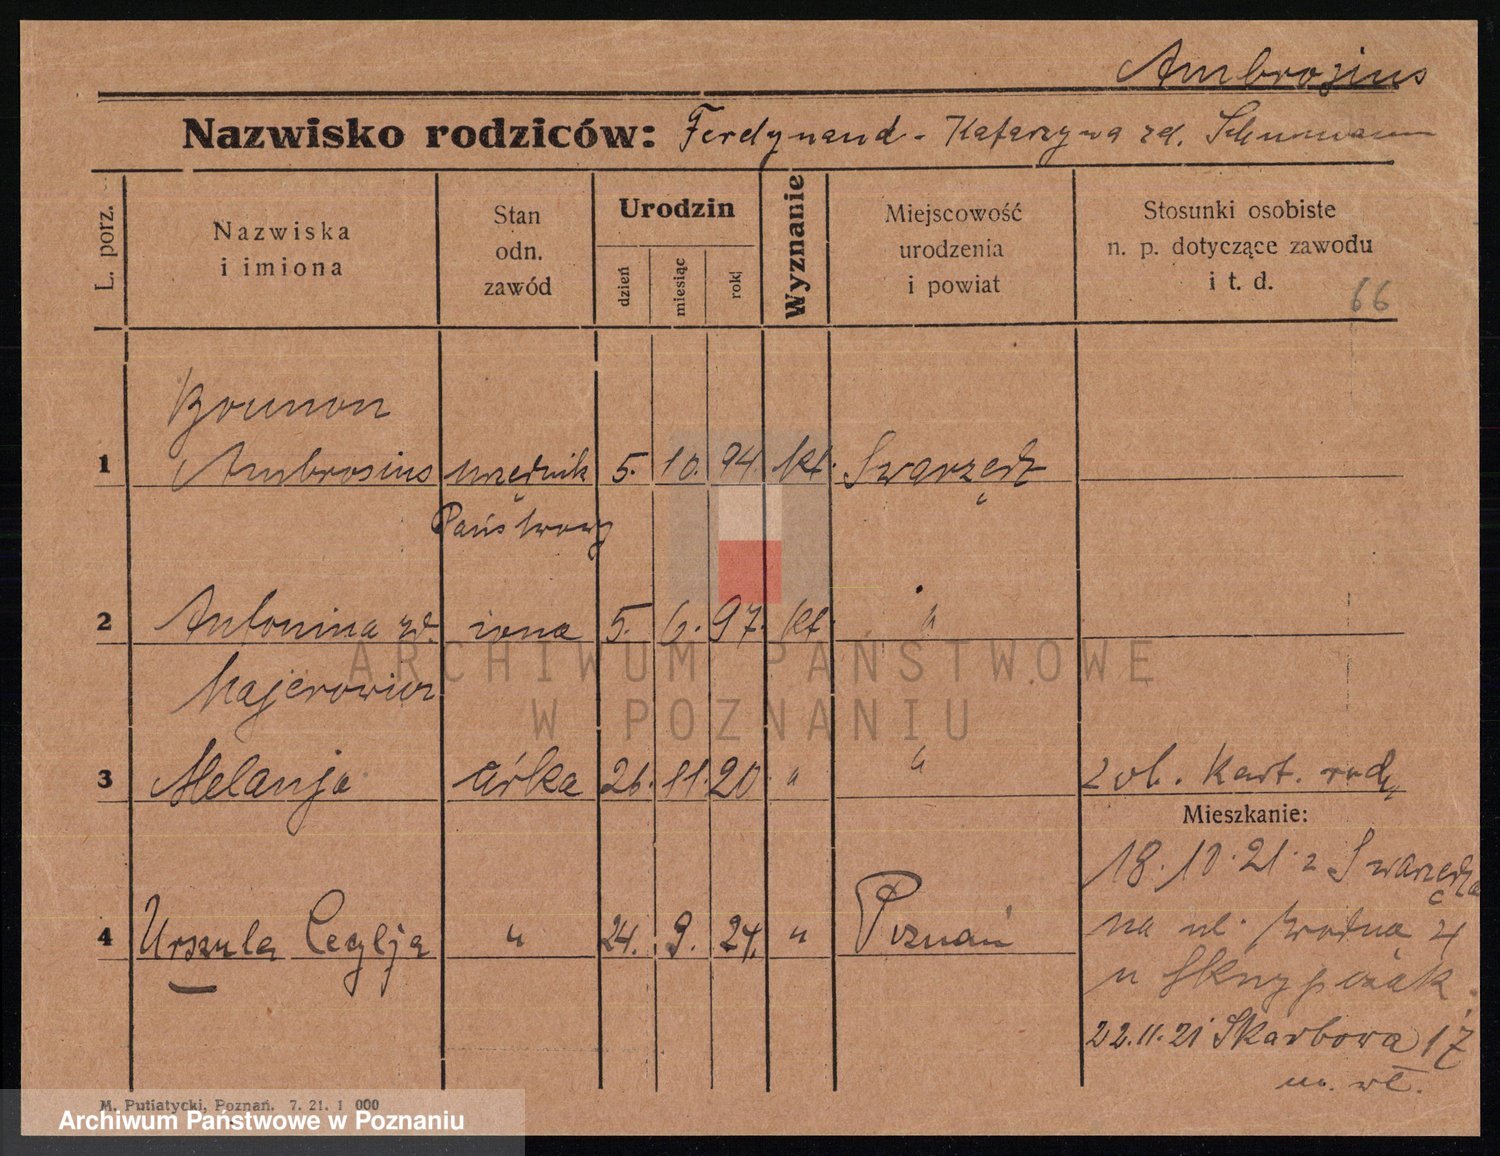 Ambrozius
Nazwisko rodziców: Ferdynand - Katarzyna zd.
L. porz.
Nazwiska
i imiona
Stan
odn.
zawód
Urodzin
dzień
miesiąc
rok
Wyznanie
Miejscowość
urodzenia
i powiat
Stosunki osobiste
n. p. dotyczące zawodu
i t. d.
66
1 Ambrosius urzędnik 5. 10. 94. kt. Swarzędz
Państwowy
2 Antonina zd. żona 5. 6. 97. kt. "
Majerowicz
3 Melanja córka 26. 11. 20 " " zob. kart. rodz.
Mieszkanie:
18.10.21 z Swarzędza
na ul. Wodna 4
u
4 Urszula Cecylja " 24. 9. 24. " Poznań
22.11.21 Skarbowa 17
m. wł.
ARCHIWUM PAŃSTWOWE
W POZNANIU
M. Putiatycki, Poznań. 7. 21. 1 000
Archiwum Państwowe w Poznaniu